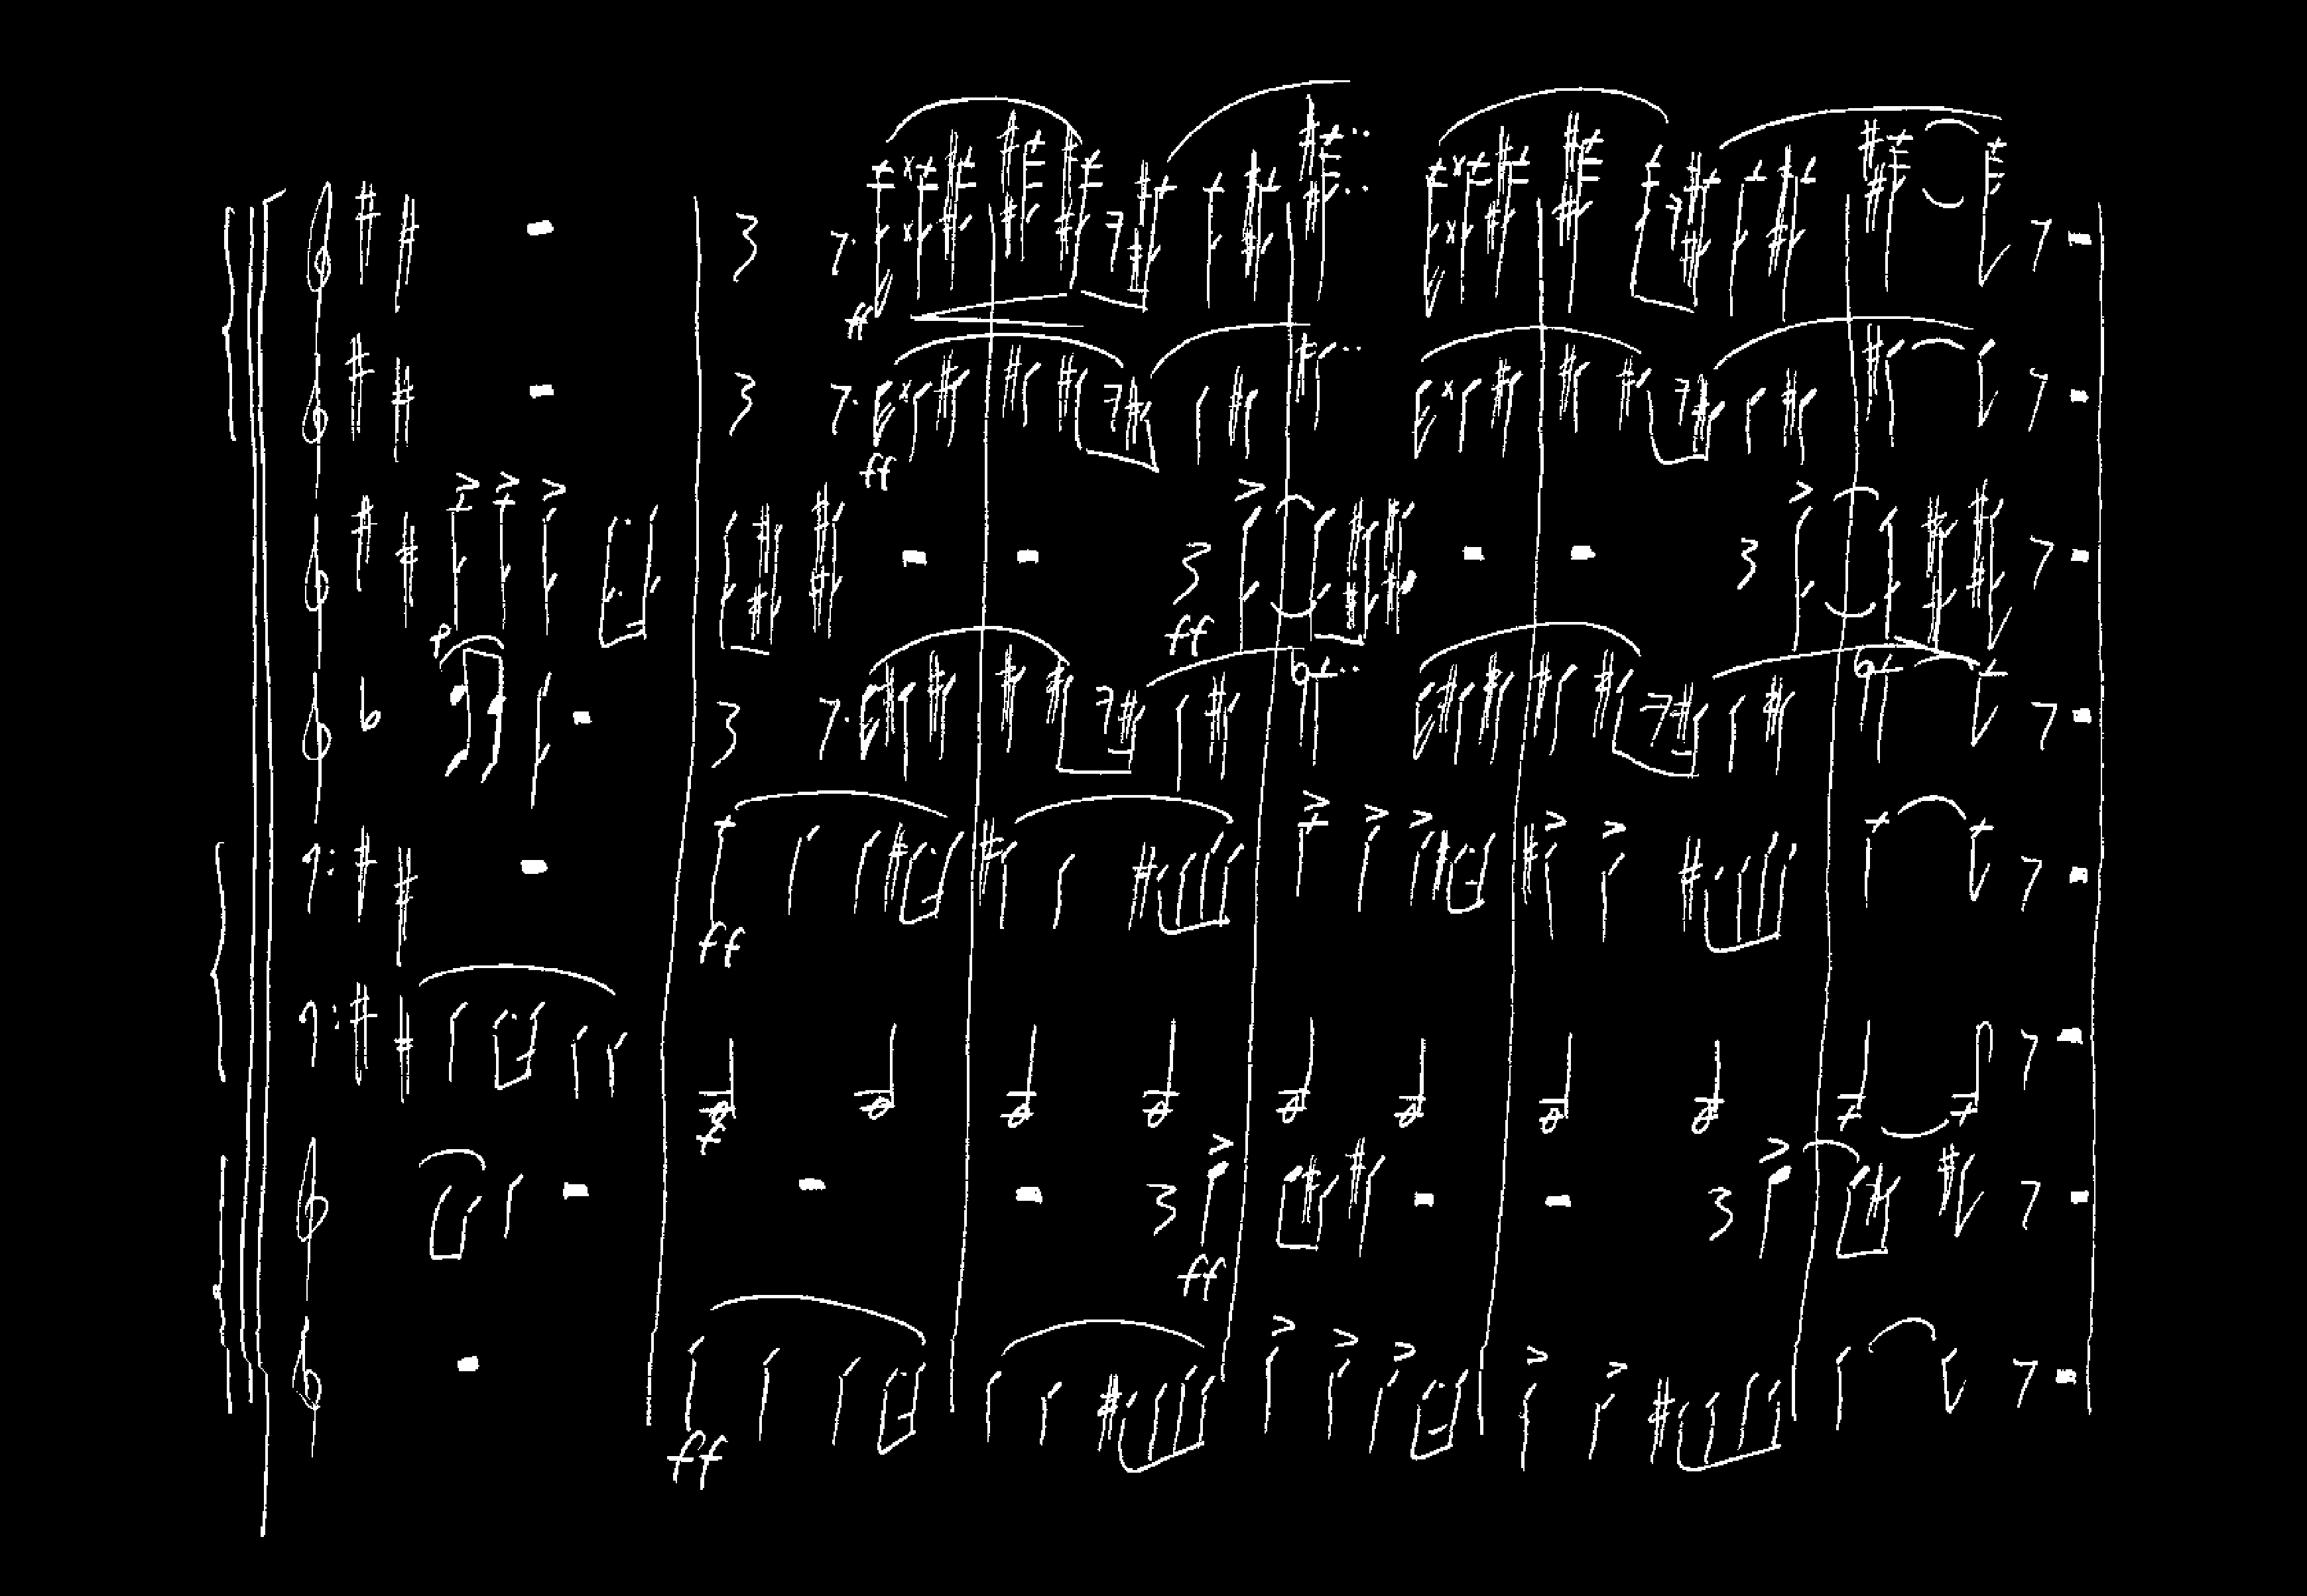 ff
ff
p
ff
ff
ff
ff